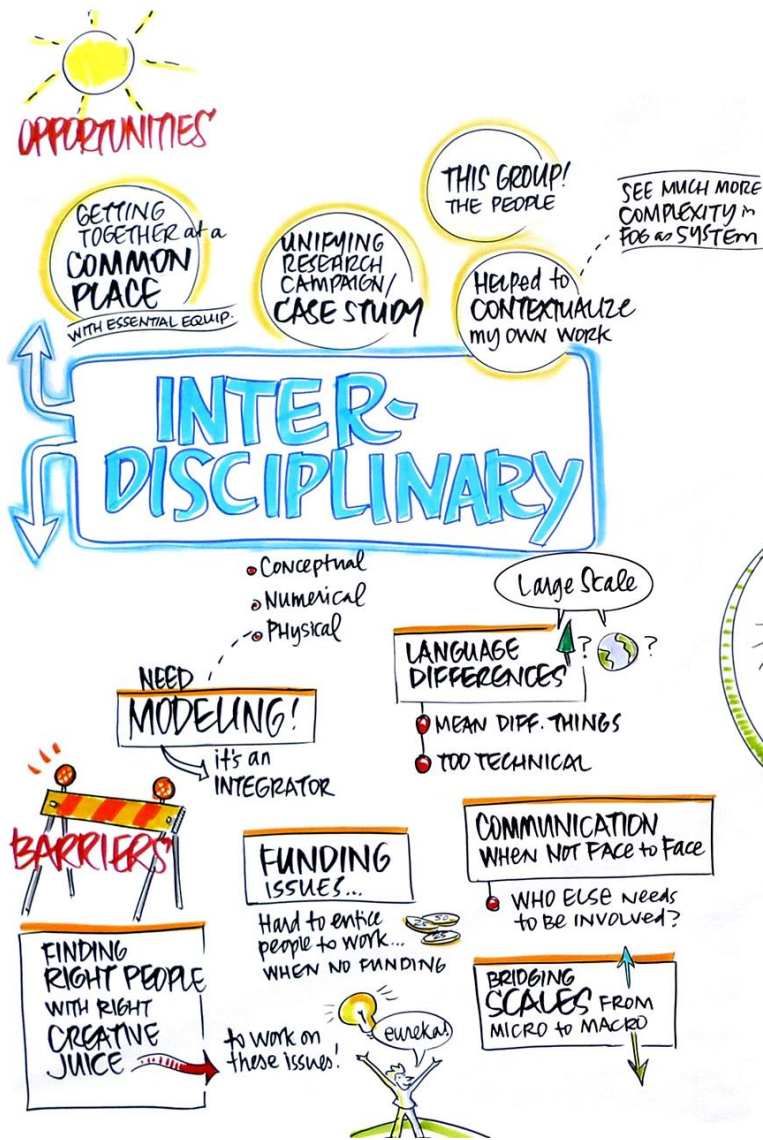 OPPORTUNITIES
GETTING
TOGETHER at a
COMMON
PLACE
WITH ESSENTIAL EQUIP.
UNIFYING
RESEARCH
CAMPAIGN/
CASE STUDY
THIS GROUP!
THE PEOPLE
HELPED to
CONTEXTUALIZE
my OWN WORK
SEE MUCH MORE
COMPLEXITY in
FOG as SYSTEM
INTER-
DISCIPLINARY
Conceptual
Numerical
Physical
NEED
MODELING!
it's an
INTEGRATOR
Large Scale
LANGUAGE
DIFFERENCES
? ?
MEAN DIFF. THINGS
TOO TECHNICAL
BARRIERS
FUNDING
ISSUES...
Hard to entice
people to work...
WHEN NO FUNDING
COMMUNICATION
WHEN NOT FACE to FACE
WHO ELSE Needs
to BE INVOLVED?
FINDING
RIGHT PEOPLE
WITH RIGHT
CREATIVE
JUICE
to work on
these issues!
eureka!
BRIDGING
SCALES FROM
MICRO to MACRO